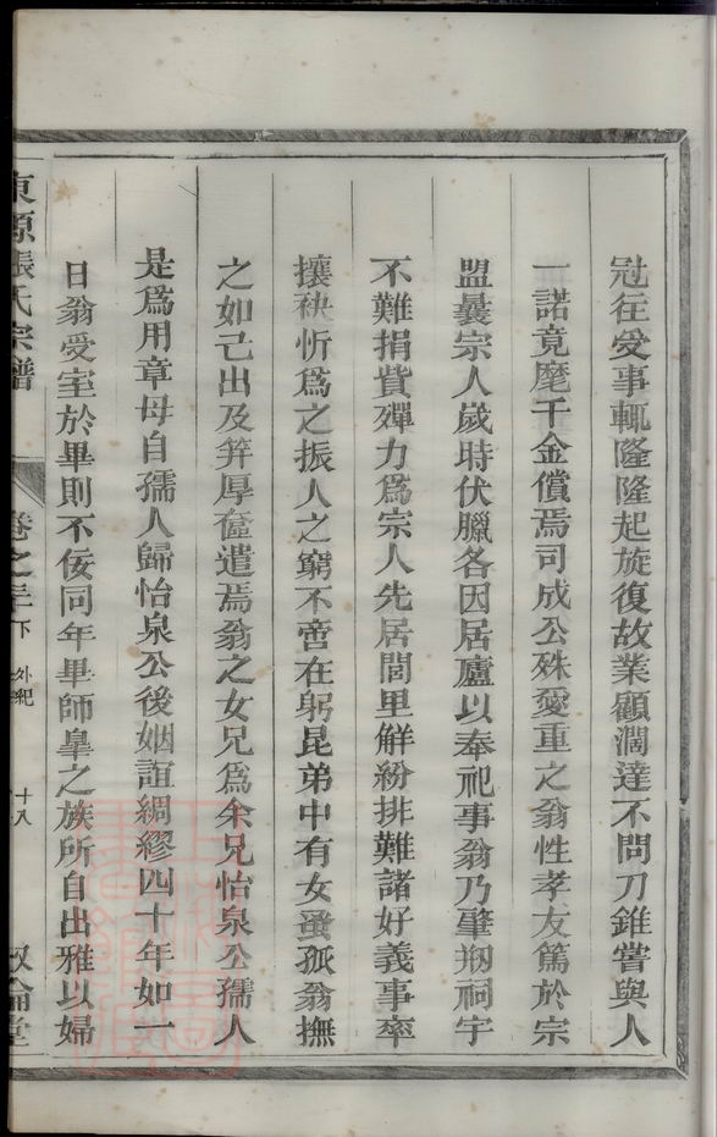 冠往受事輒隆隆起旋復故業顧濶達不問刀錐嘗與人
一諾竟麾千金償焉司成公殊愛重之翁性孝友篤於宗
盟曩宗人歲時伏臘各因居廬以奉祀事翁乃肇剏祠宇
不難捐貲殫力爲宗人先居閭里解紛排難諸好義事率
攘袂忻爲之振人之窮不啻在躬昆弟中有女蚤孤翁撫
之如己出及笄厚奩遣焉翁之女兄爲余兄怡泉公孺人
是爲用章母自孺人歸怡泉公後姻誼綢繆四十年如一
日翁受室於畢則不佞同年畢師臯之族所自出雅以婦
東源張氏宗譜 卷之三下 外紀 十八 敘倫堂